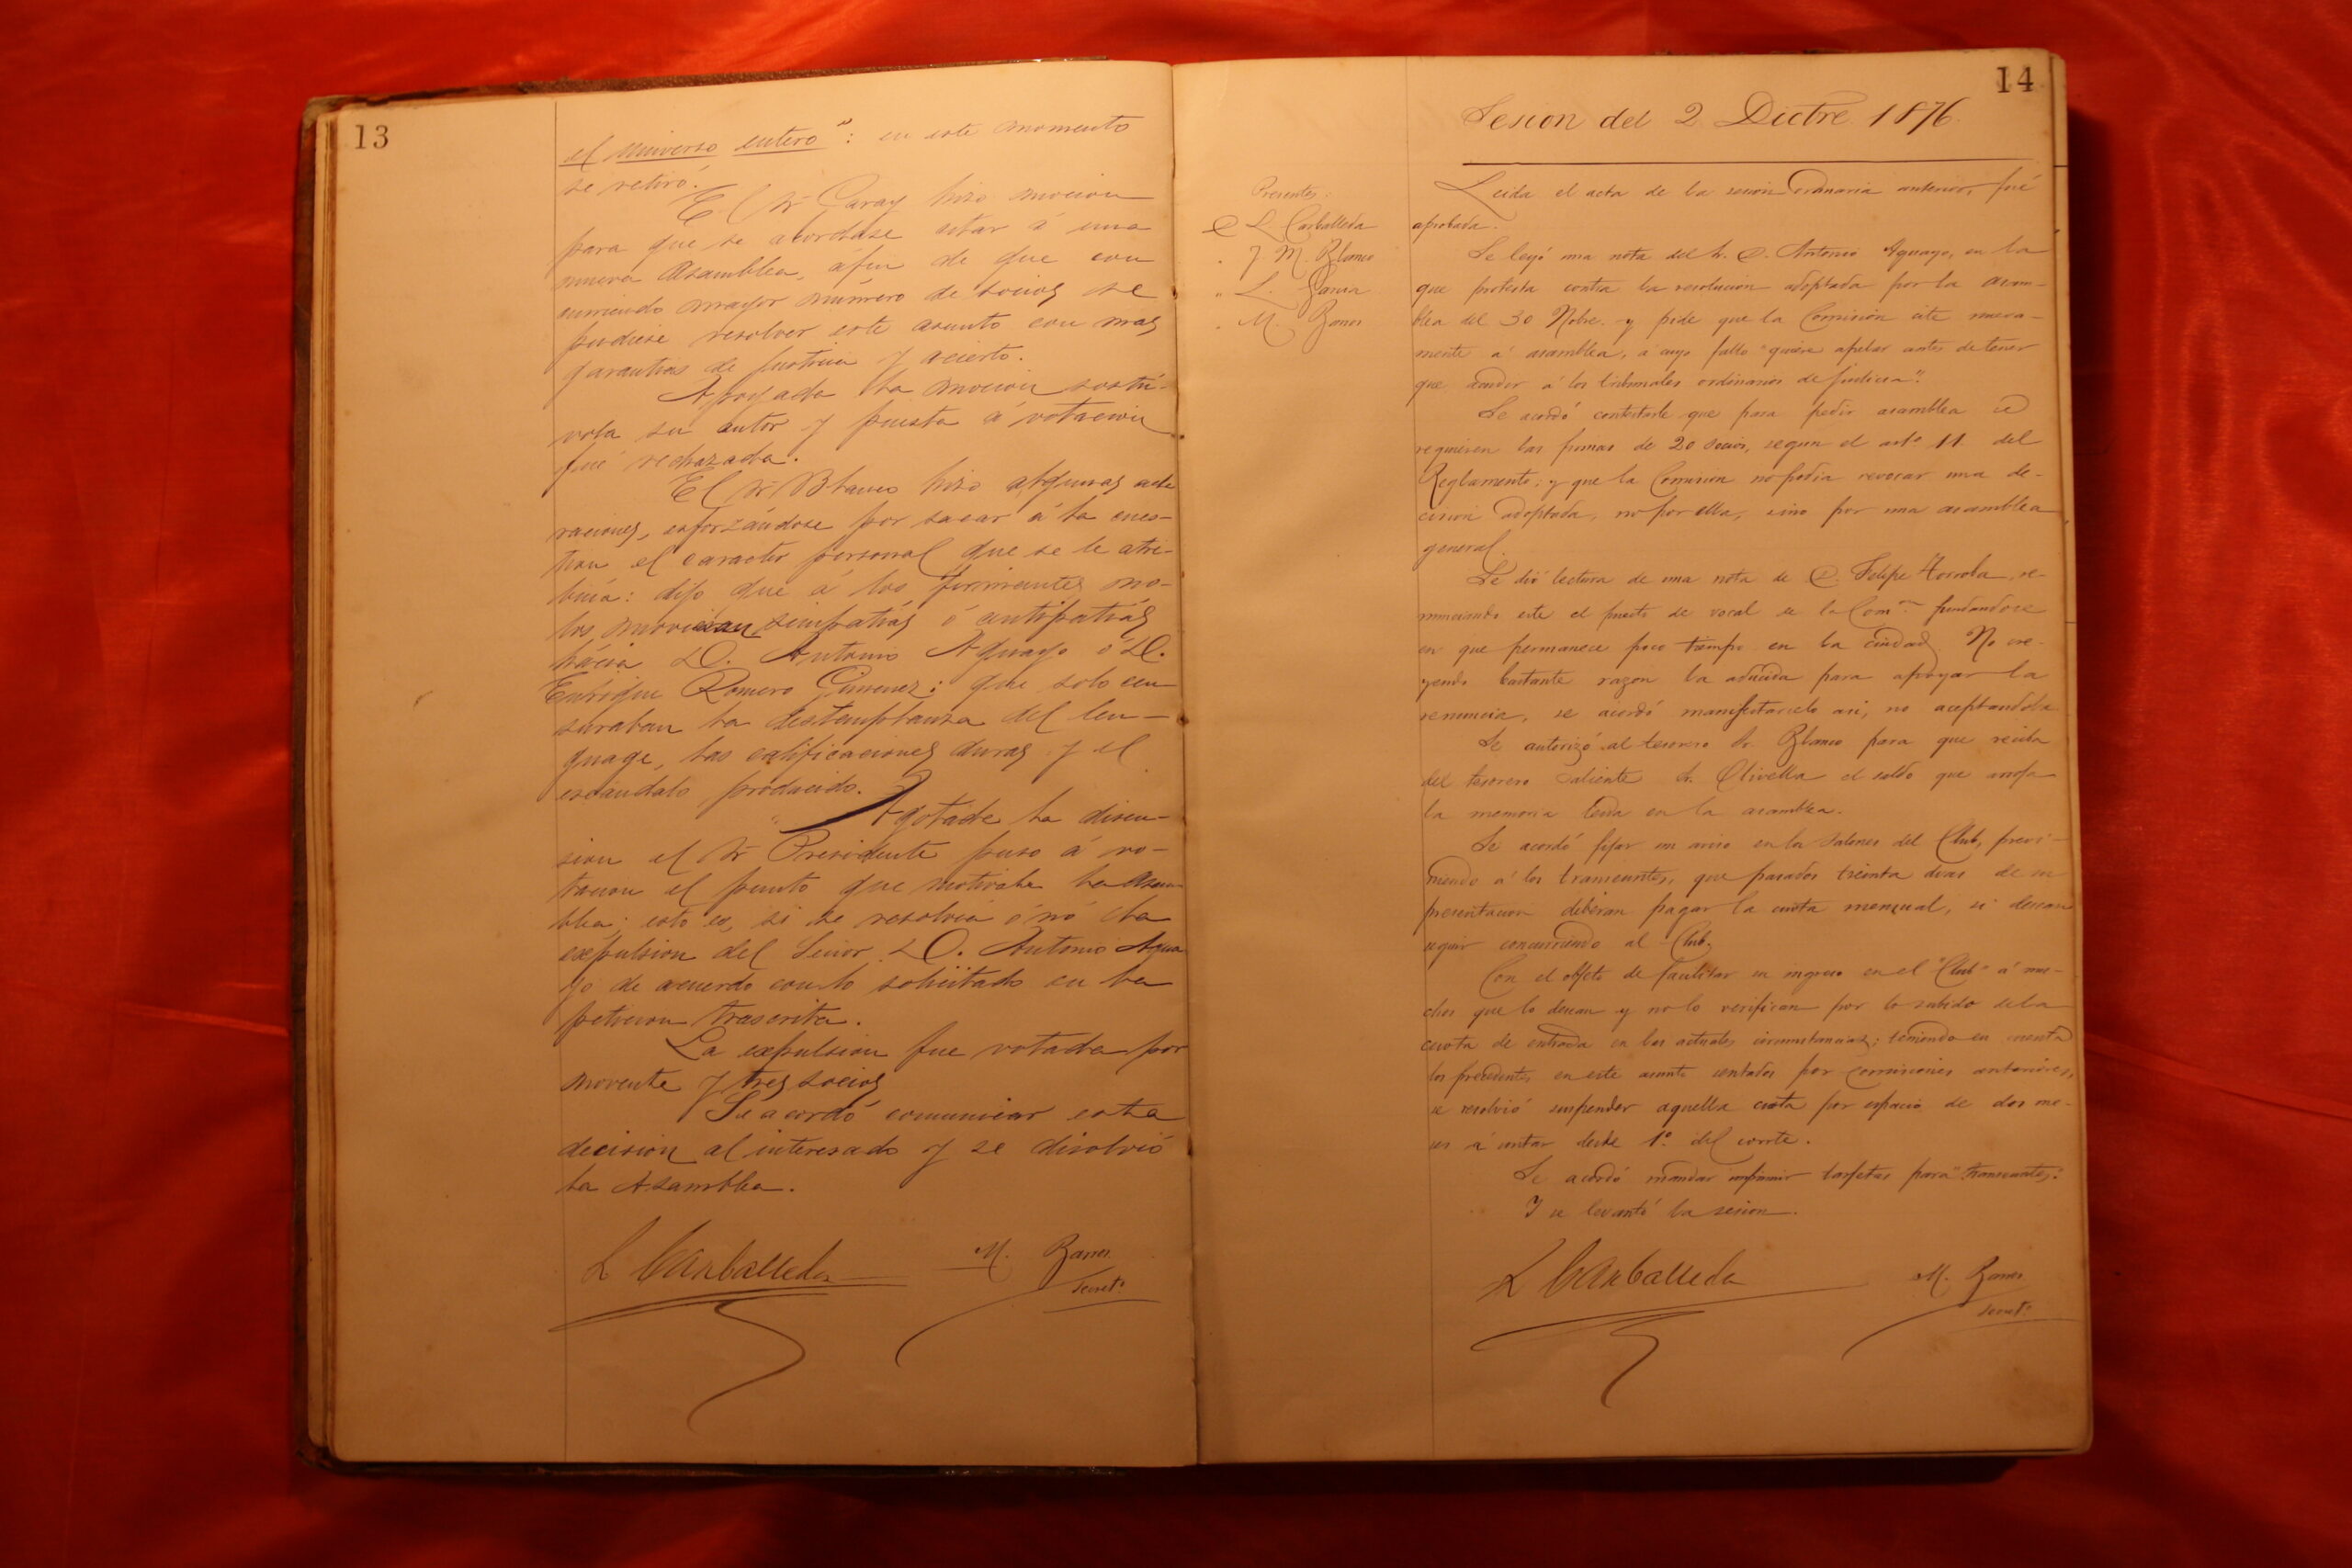 13
el universo entero": en este momento
se retiró.
El Sr Garay hizo mocion
para que se acordase citar á una
nueva Asamblea, afin de que con
curriendo mayor número de socios se
pudiese resolver este asunto con mas
garantias de justicia y acierto.
Apoyada la mocion sostú-
vola su autor y puesta á votacion
fué rechazada.
El Sr Blanco hizo algunas acla
raciones, esforzándose por sacar á la cues-
tion el caracter personal que se le atri-
buia: dijo que á los firmantes no
los movian simpatias ó antipatias
hácia D. Antonio Aguayo ó D.
Enrique Romero Gimenez: que solo cen
suraban la destemplanza del len-
guage, las calificaciones duras y el
escándalo producido.
Agotada la discu-
sion el Sr Presidente puso á vo-
tacion el punto que motivaba la asam-
blea; esto es, si se resolvia ó nó la
expulsion del Señor D. Antonio Agua
yo de acuerdo con lo solicitado en la
peticion trascrita.
La expulsion fue votada por
noventa y tres socios
Se acordó comunicar esta
decision al interesado y se disolvió
la Asamblea.
L Carballeda
M. Bares
Secret°
14
Sesion del 2 Dictre 1876.
Presentes:
D L. Carballeda
" J. M. Blanco
" L.
" M. Bares
Leida el acta de la sesion ordinaria anterior, fué
aprobada.
Se leyó una nota del Sr. D. Antonio Aguayo, en la
que protesta contra la resolucion adoptada por la asam-
blea del 30 Nobre. y pide que la Comision cite nueva-
mente á asamblea, á cuyo fallo "quiere apelar antes de tener
que acudir á los tribunales ordinarios de justicia".
Se acordó contestarle que para pedir asamblea se
requieren las firmas de 20 socios, segun el arto 11 del
Reglamento; y que la Comision no podia revocar una de-
cision adoptada, no por ella, sino por una asamblea
general.
Se dió lectura de una nota de D. Felipe Horrola, re-
nunciando este el puesto de vocal de la Comon fundandose
en que permanece poco tiempo en la ciudad. No cre-
yendo bastante razon la aducida para apoyar la
renuncia, se acordó manifestarselo asi, no aceptandola
Se autorizó al tesorero Sr. Blanco para que reciba
del tesorero saliente Sr. Olivella el saldo que arroja
la memoria leida en la asamblea.
Se acordó fijar un aviso en los salones del Club, previ-
niendo á los transeuntes, que pasados treinta dias de su
presentacion deberán pagar la cuota mensual, si desean
seguir concurriendo al Club.
Con el objeto de facilitar su ingreso en el "Club" á mu-
chos que lo desean y no lo verifican por lo subido de la
cuota de entrada en las actuales circunstancias; teniendo en cuenta
los precedentes en este asunto sentados por comisiones anteriores,
se resolvió suspender aquella cuota por espacio de dos me-
ses á contar desde 1º. del corrte.
Se acordó mandar imprimir tarjetas para "transeuntes".
Y se levantó la sesion.
L Carballeda
M. Bares
Secret°